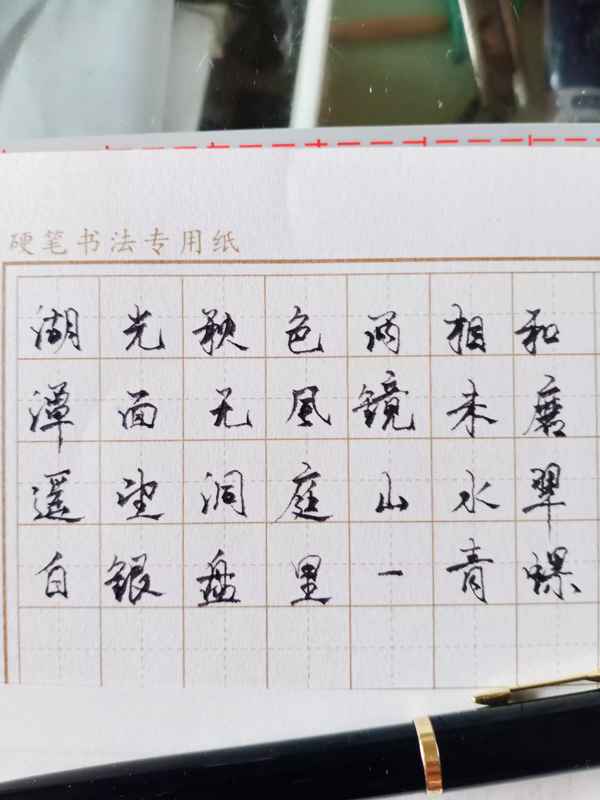 硬笔书法专用纸
湖光秋色两相和
潭面无风镜未磨
遥望洞庭山水翠
白银盘里一青螺